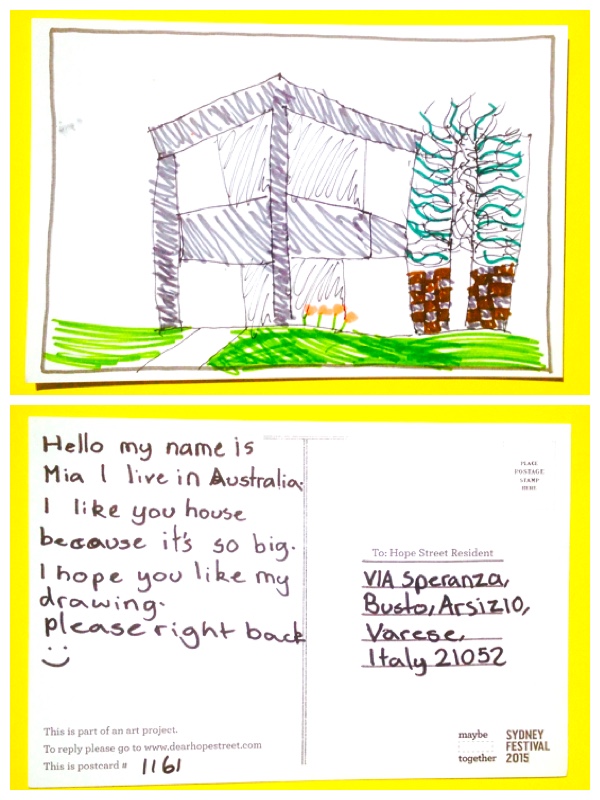 Hello my name is
Mia I live in Australia.
I like you house
because it's so big.
I hope you like my
drawing.
please right back
This is part of an art project.
To reply please go to www.dearhopestreet.com
This is postcard # 1161
PLACE
POSTAGE
STAMP
HERE
To: Hope Street Resident
VIA Speranza,
Busto, Arsizio,
Varese,
Italy 21052
maybe
together
SYDNEY
FESTIVAL
2015